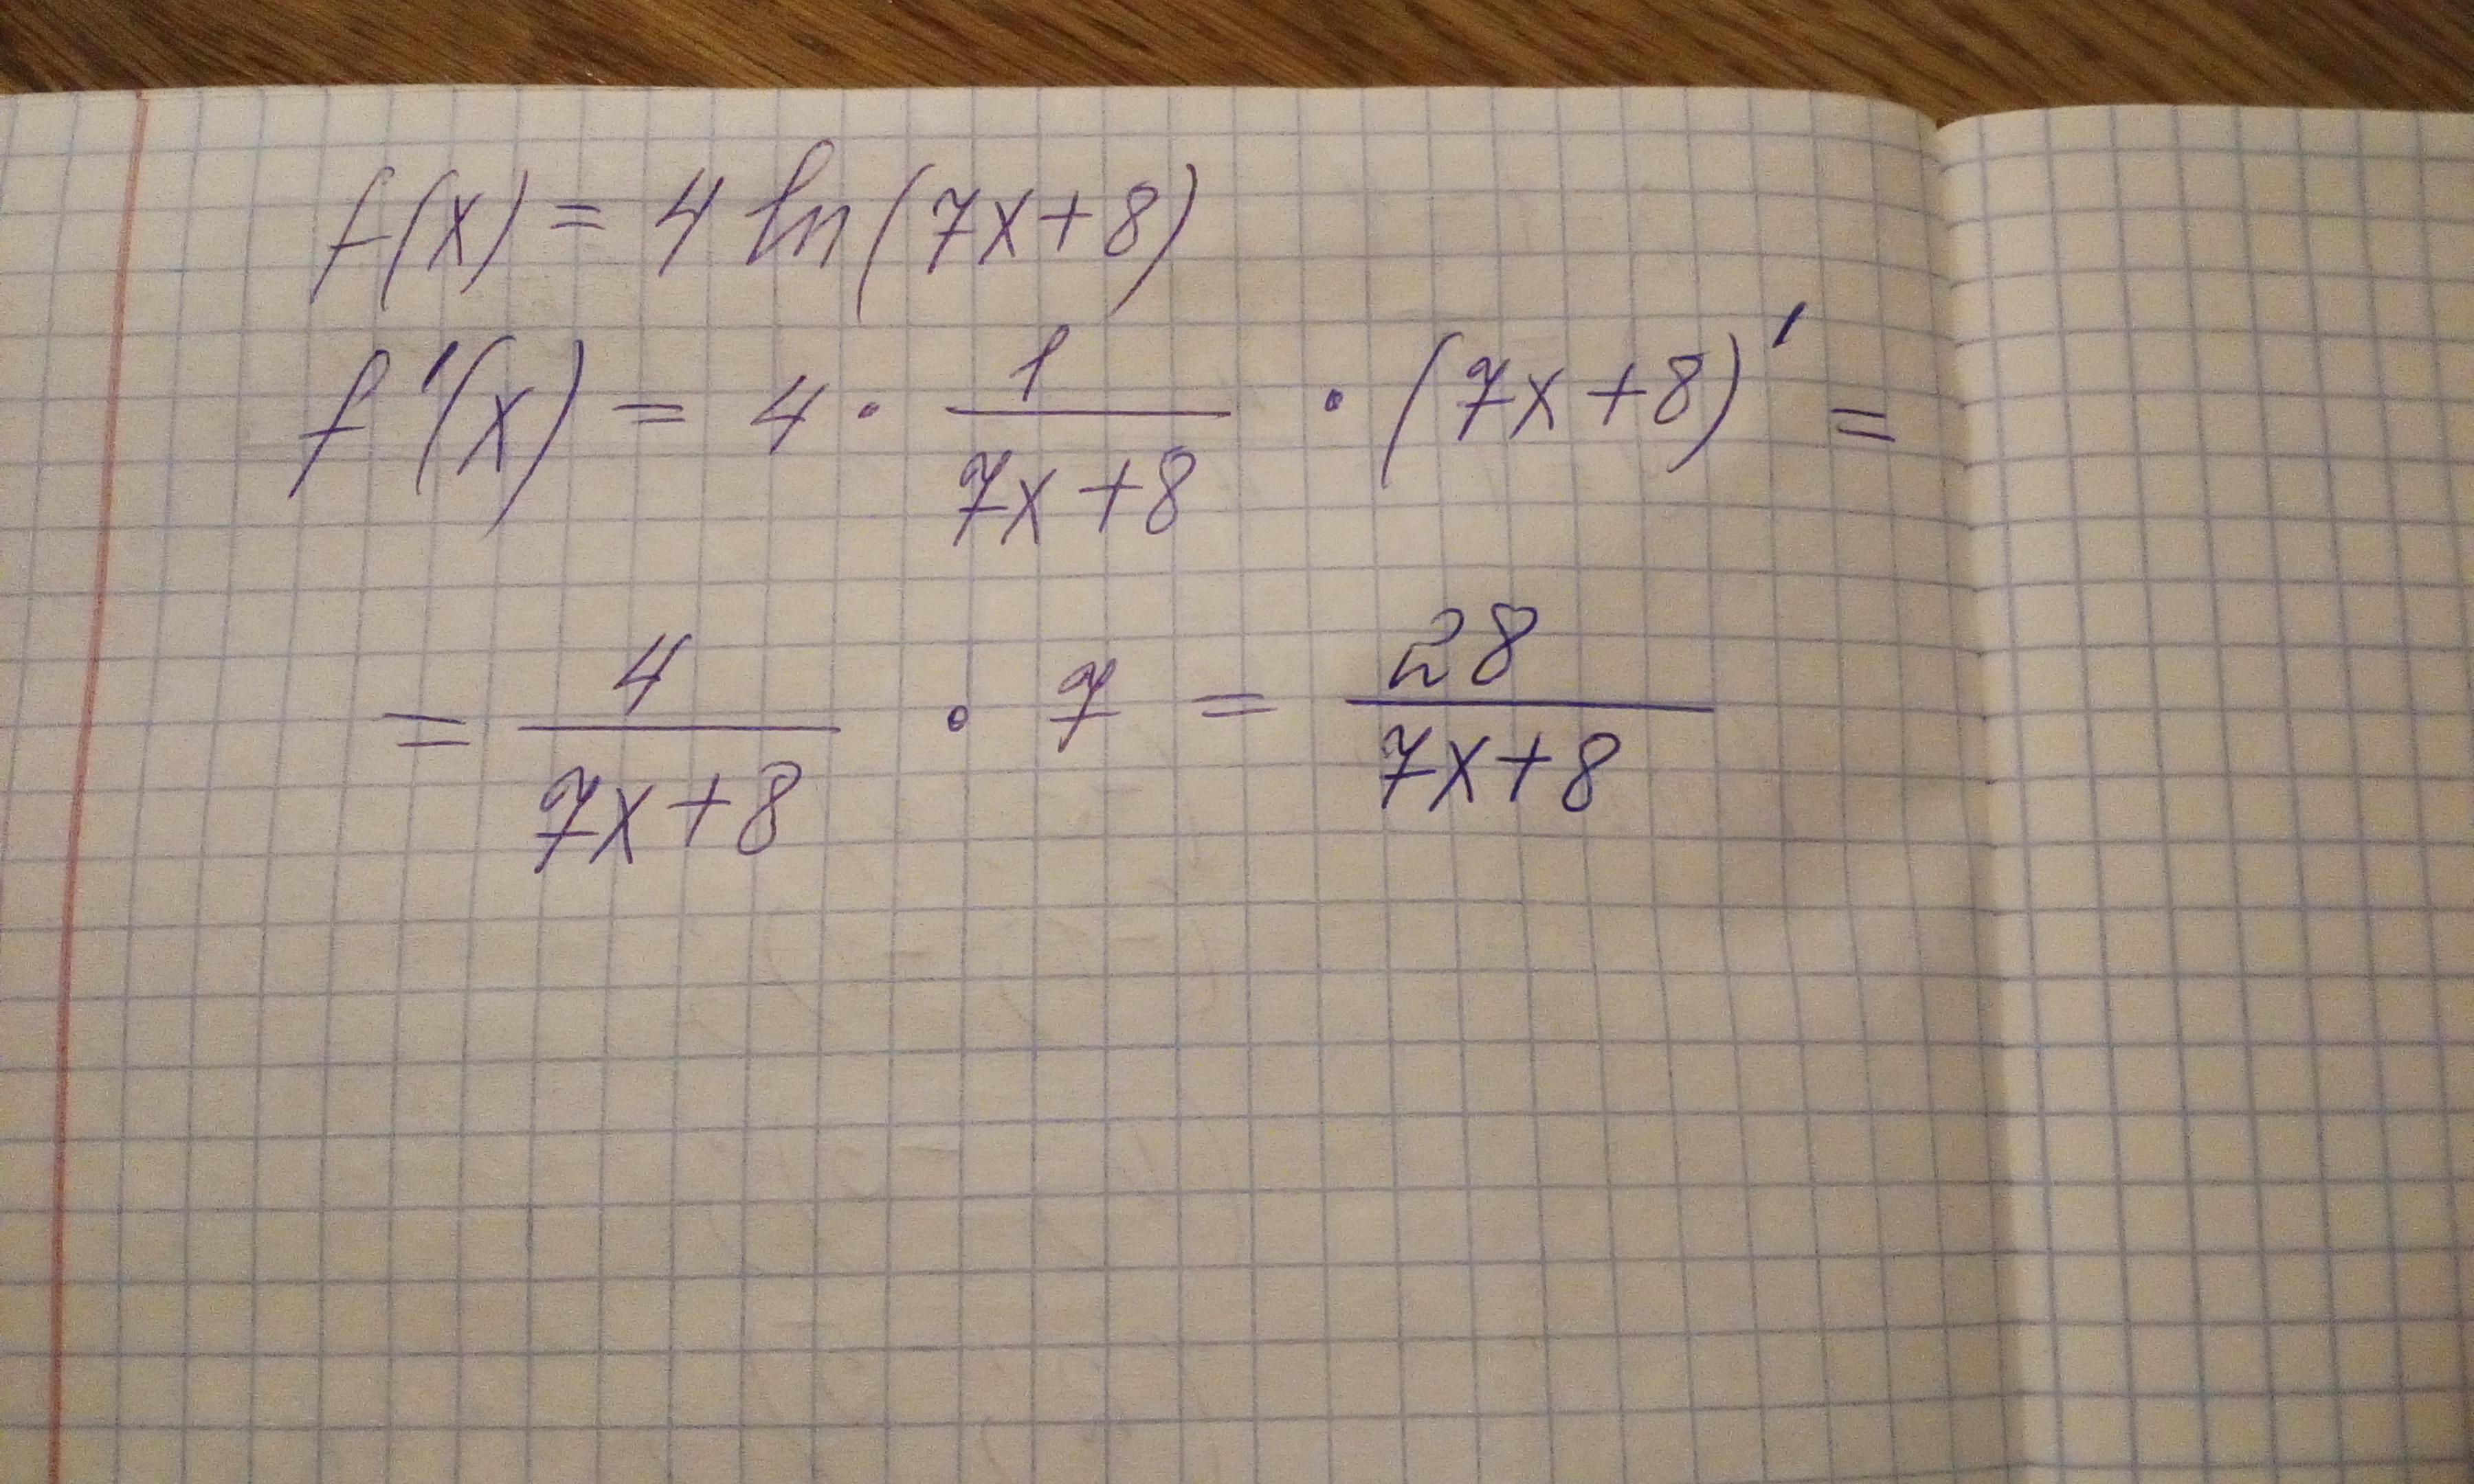 f(x) = 4 ln(7x+8)
f'(x) = 4 · 1/(7x+8) · (7x+8)' =
= 4/(7x+8) · 7 = 28/(7x+8)